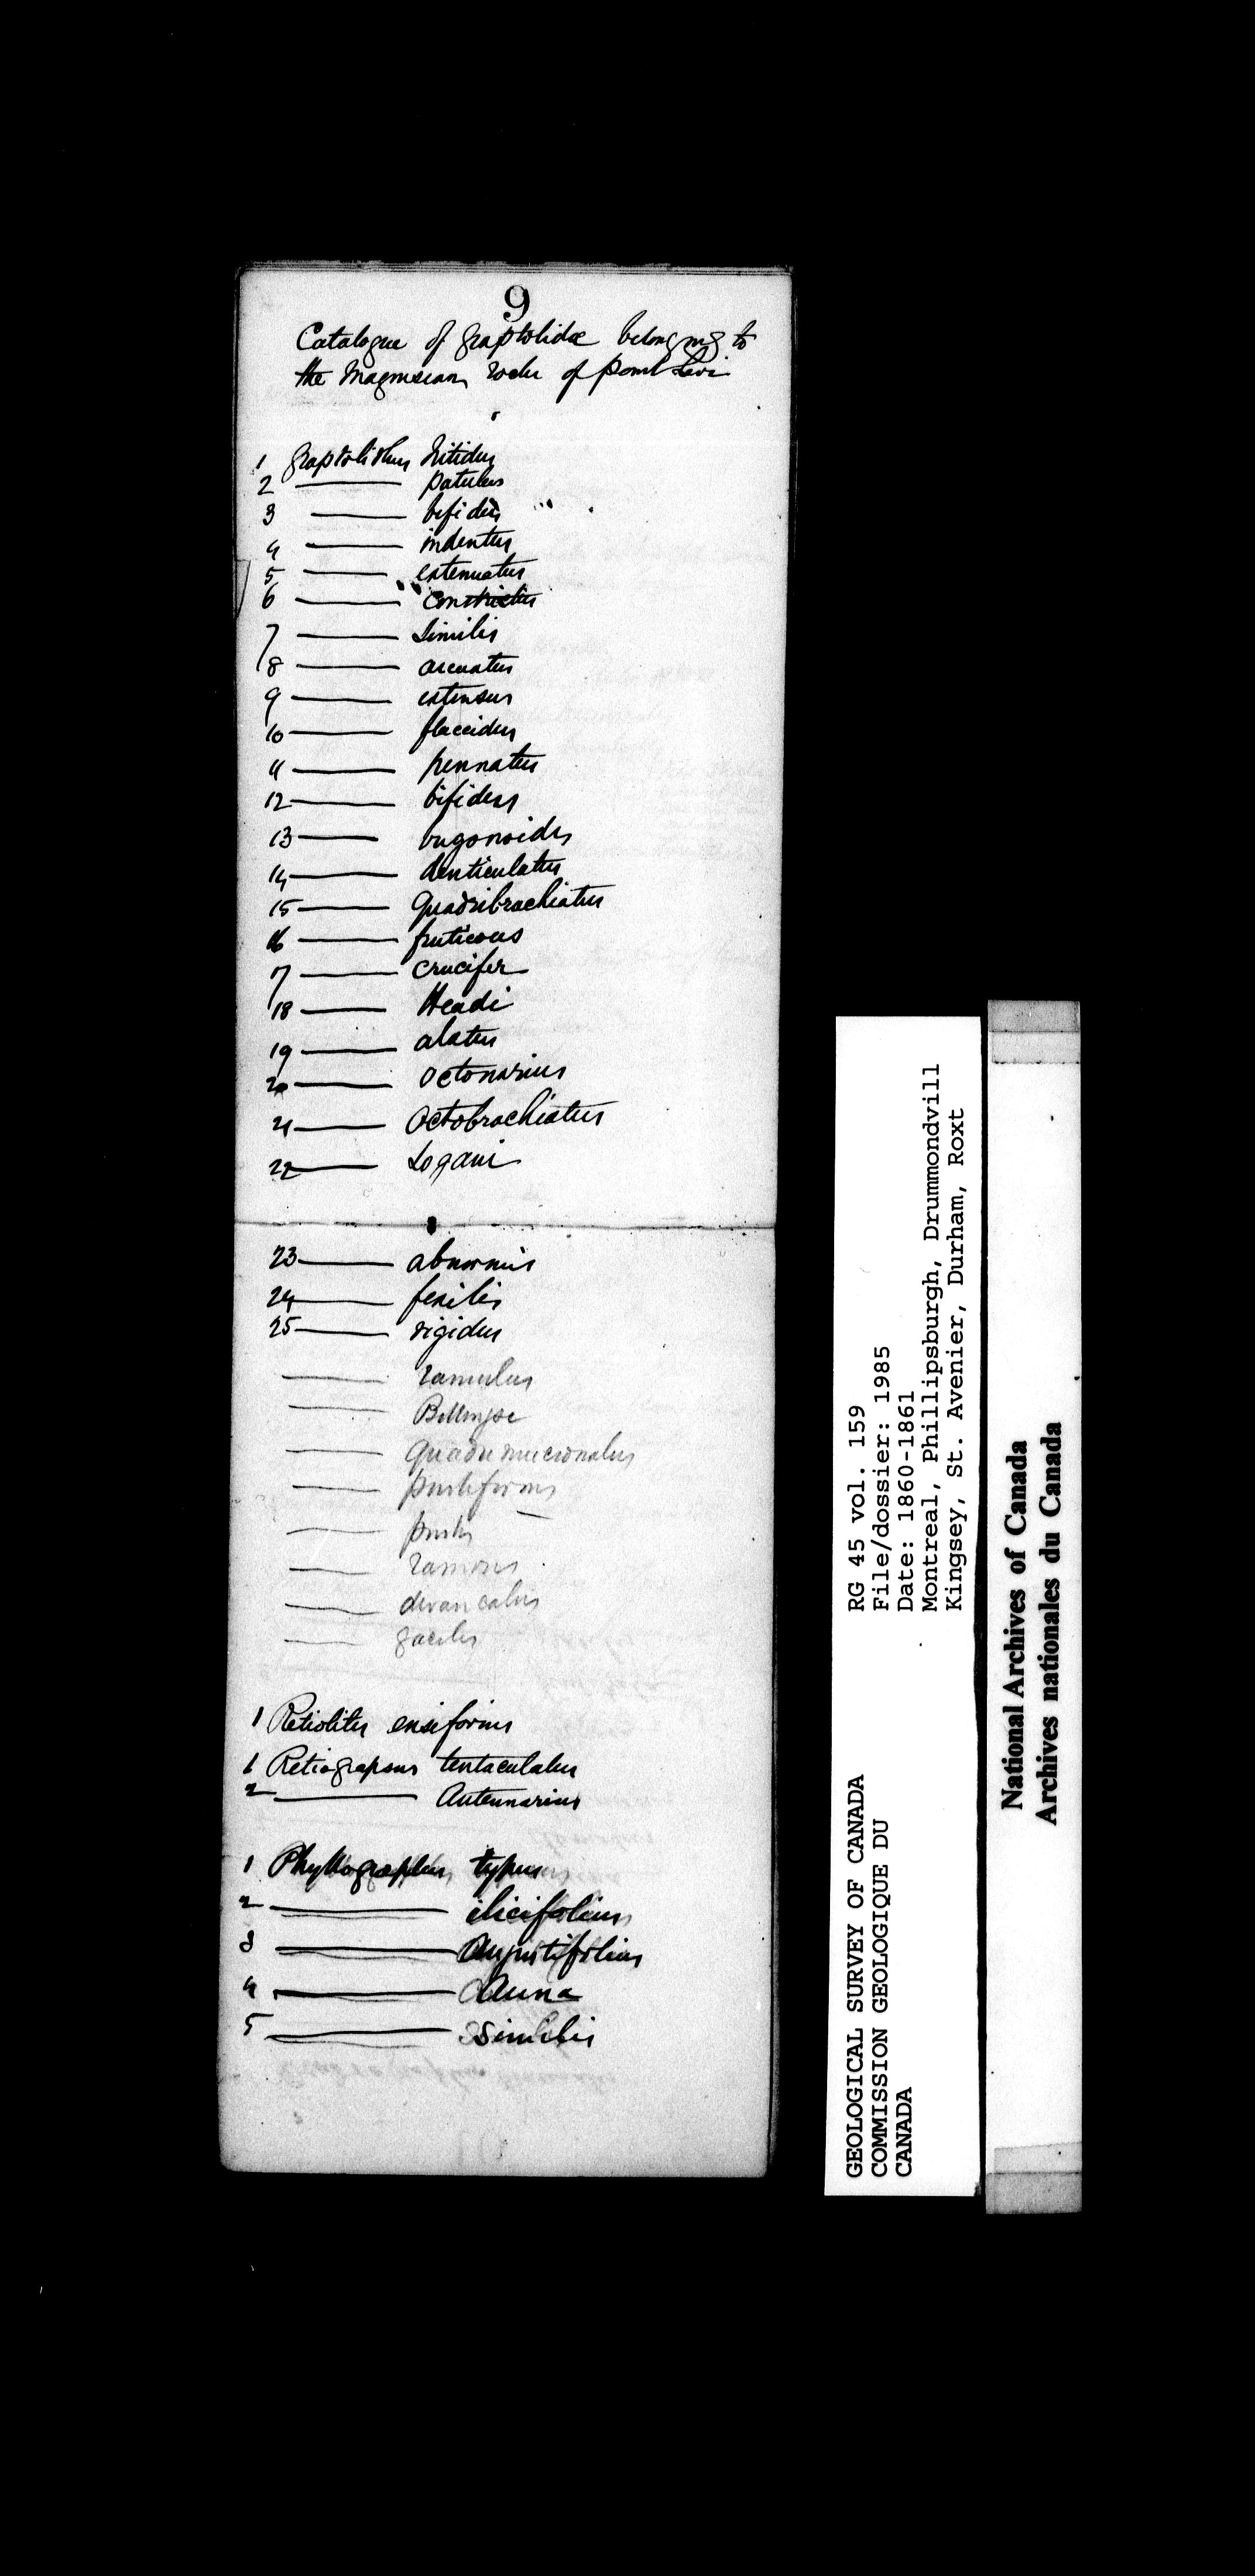 9
Catalogue of graptolidæ belonging to
the Magnesian rocks of point Levi
1 graptolithus Nitidus
2 ——— patulus
3 ——— bifidus
4 ——— indentus
5 ——— extenuatus
6 ——— constrictus
7 ——— Similis
8 ——— arcuatus
9 ——— extensus
10 ——— flaccidus
11 ——— pennatus
12 ——— bifidus
13 ——— bryonoides
14 ——— denticulatus
15 ——— quadribrachiatus
16 ——— fruticosus
17 ——— crucifer
18 ——— Headi
19 ——— alatus
20 ——— octonarius
21 ——— Octobrachiatus
22 ——— Logani
23 ——— abnormis
24 ——— fexilis
25 ——— rigidus
——— ramulus
———
——— quadrimucronatus
——— pristiformis
——— pristis
——— ramosus
——— divaricatus
——— gracilis
1 Retiolites ensiformis
1 Retiograpsus tentaculatus
2 ——— Antennarius
1 Phyllograptus typus
2 ——— ilicifolius
3 ——— angustifolius
4 ——— Anna
5 ——— Similis
GEOLOGICAL SURVEY OF CANADA
COMMISSION GEOLOGIQUE DU
CANADA
RG 45 vol. 159
File/dossier: 1985
Date: 1860-1861
Montreal, Phillipsburgh, Drummondvill
Kingsey, St. Avenier, Durham, Roxt
National Archives of Canada
Archives nationales du Canada